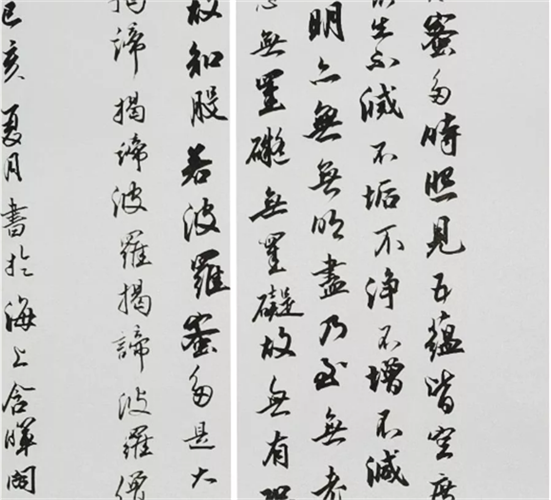 蜜多時照見五蘊皆空度
生不滅不垢不淨不增不減
明亦無無明盡乃至無老
無罣礙無罣礙故無有恐
故知般若波羅蜜多是大
揭諦揭諦波羅揭諦波羅僧
己亥夏月書於海上含暉閣